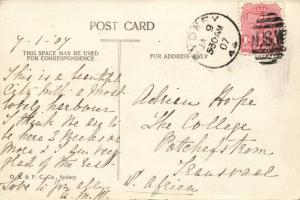 POST CARD
7-1-07
THIS SPACE MAY BE USED
FOR CORRESPONDENCE
FOR ADDRESS ONLY
SYDNEY
JA 9
530AM
07
NSW
This is a beautiful
City with a most
lovely harbour
I think we are to
be here 3 weeks or
more & I am very
glad of the rest
Love to you all
Adrian Hope
The College
Potchefstrom
Transvaal
S. Africa
& P. C. Co., Sydney